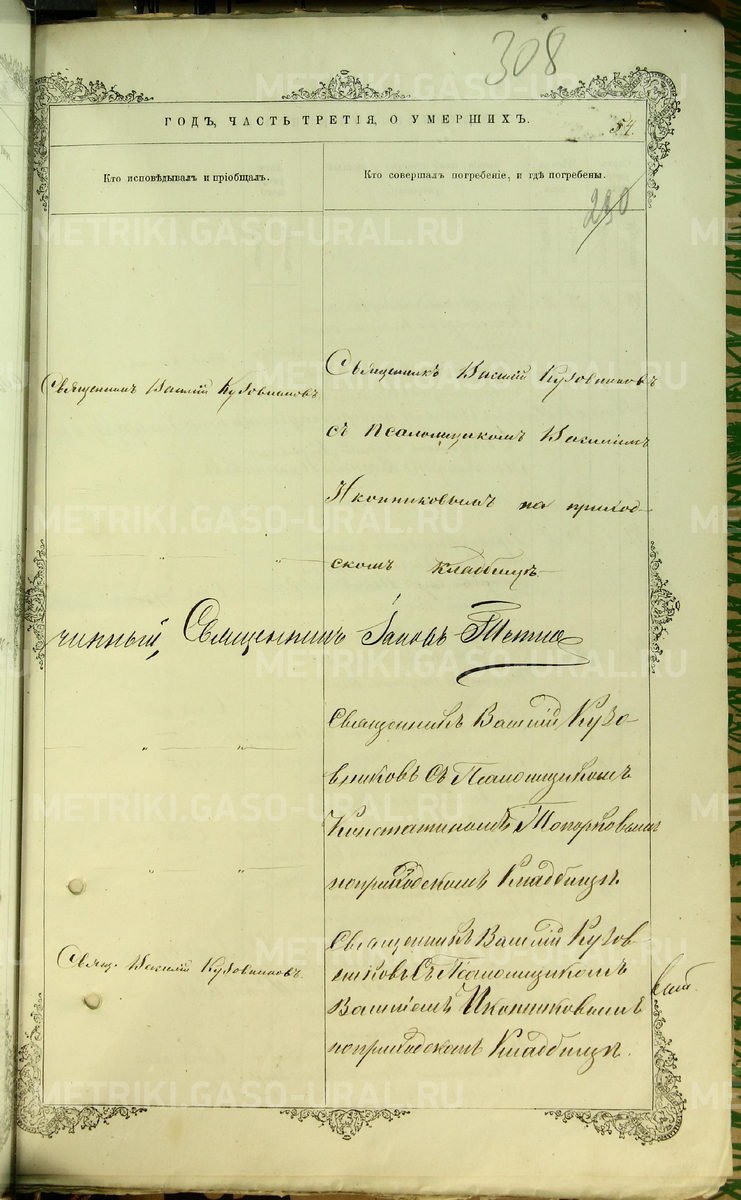 308
ГОДЪ, ЧАСТЬ ТРЕТІЯ, О УМЕРШИХЪ.
54.
Кто исповѣдывалъ и пріобщалъ.
Кто совершалъ погребеніе, и гдѣ погребены.
230
Священникъ Василій Кузовниковъ
Священникъ Василій Кузовниковъ
съ псаломщикомъ Василіемъ
Иконниковымъ на приход-
скомъ кладбищѣ
чинный, Священникъ Іаковъ
Священникъ Василій Кузо
вниковъ съ Псаломщикомъ
Константиномъ Топорковымъ
на приходскомъ Кладбищѣ.
Священникъ Василій Кузов
Свящ. Василій Кузовниковъ.
никовъ съ Псаломщикомъ
Василіемъ Иконниковымъ
на приходскомъ Кладбищѣ.
METRIKI.GASO-URAL.RU